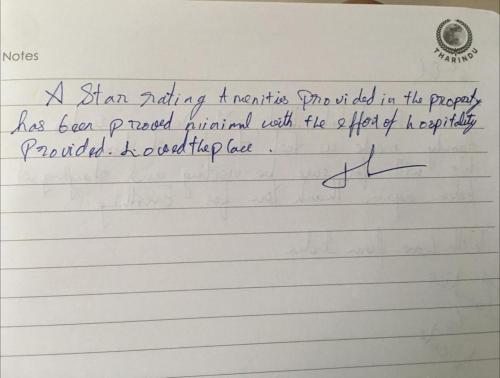 Notes
THARINDU
A Star rating Amenities provided in the property
has been proved minimal with the effort of hospitality
Provided. Loved the place.